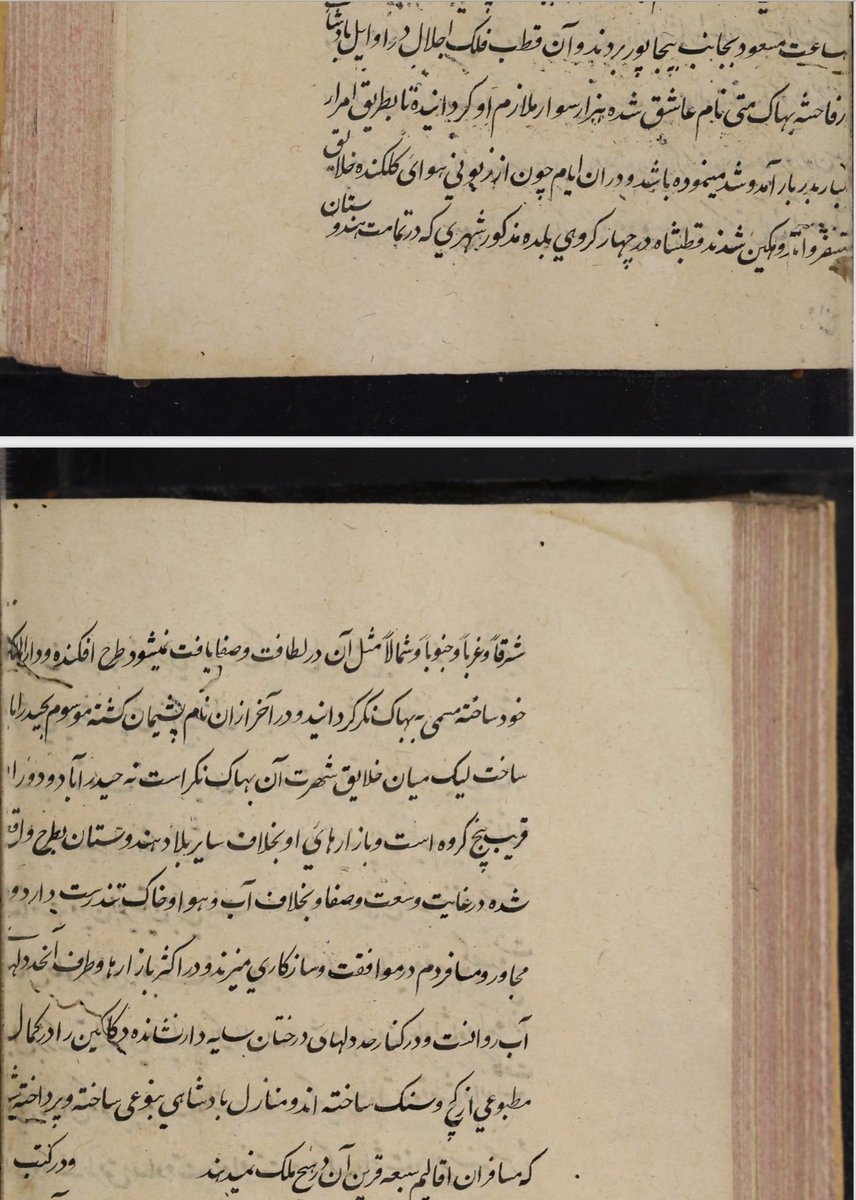 ساعت مسعود بجانب بیجاپور بردند و آن قطب فلک اجلال در اوایل بادشاهی
بر فاحشه بهاک متی نام عاشق شده هزار سوار ملازم او کردانیده تا بطریق امرار
بدربار آمد و شد مینموده باشد و در ان ایام چون از زبونی هوای کلکنده خلایق
متنفر و شدند قطبشاه در چهار کروهی بلده مذکور شهری که در تمامت هندوستان
شرقاً و غرباً و جنوباً و شمالاً مثل آن در لطافت و صفا یافت نمیشود طرح افکنده و دارالملک
خود ساخته مسمی به بهاک نکر کردانید و در آخر ازان نام پشیمان کشته موسوم بحیدراباد
ساخت لیک میان خلایق شهرت آن بهاک نکر است نه حیدرآباد و دور
قریب پنج کروه است و بازارهای او بخلاف سایر بلاد هندوستان بطرح واقع
شده در غایت وسعت و صفا و بخلاف آب و هوا و خاک تندرست دارد و
مجاور و مسافر دم در موافقت و سازکاری میزند و در اکثر بازارها و طرف
آب روانست و در کنار جدولهای درختان سایه دار نشانده دکاکین را در کمال
مطبوعی از کچ و سنک ساخته اند و منازل بادشاهی بنوعی ساخته و پرداخته
که مسافران اقالیم سبعه قرین آن در هیچ ملک نمیدهند و در کتب